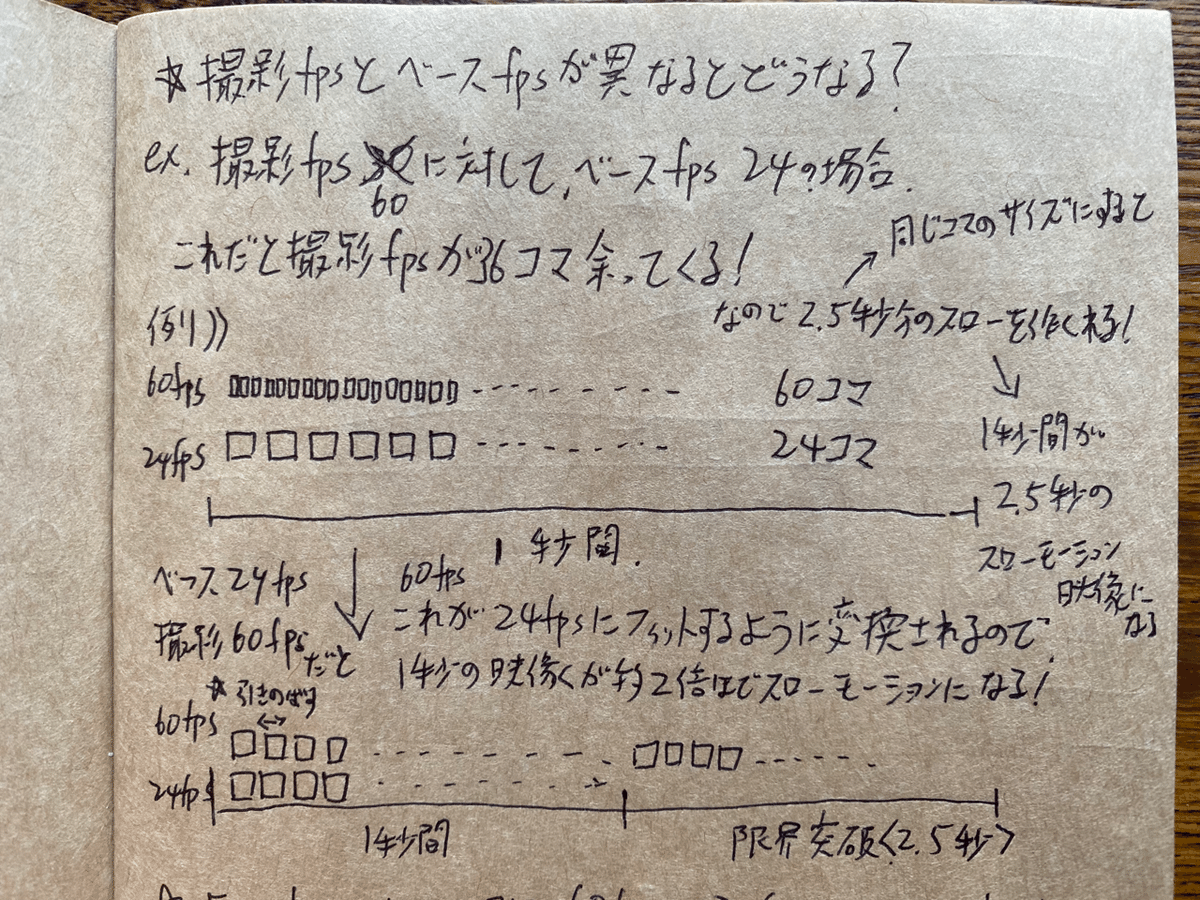 ☆撮影fpsとベースfpsが異なるとどうなる?
ex. 撮影fps 60に対して、ベースfps 24の場合.
これだと撮影fpsが36コマ余ってくる!
↗同じコマのサイズにすると
なので2.5秒分のスローを作くれる!
↘
1秒間が
2.5秒の
スローモーション
映像に
なる
例))
60fps 60コマ
24fps 24コマ
1秒間.
ベース24fps
撮影60fpsだと
60fps
これが24fpsにフィットするように変換されるので、
1秒の映像くが約2倍ほどスローモーションになる!
☆引きのばす
60fps
24fps
1秒間
限界突破<2.5秒>